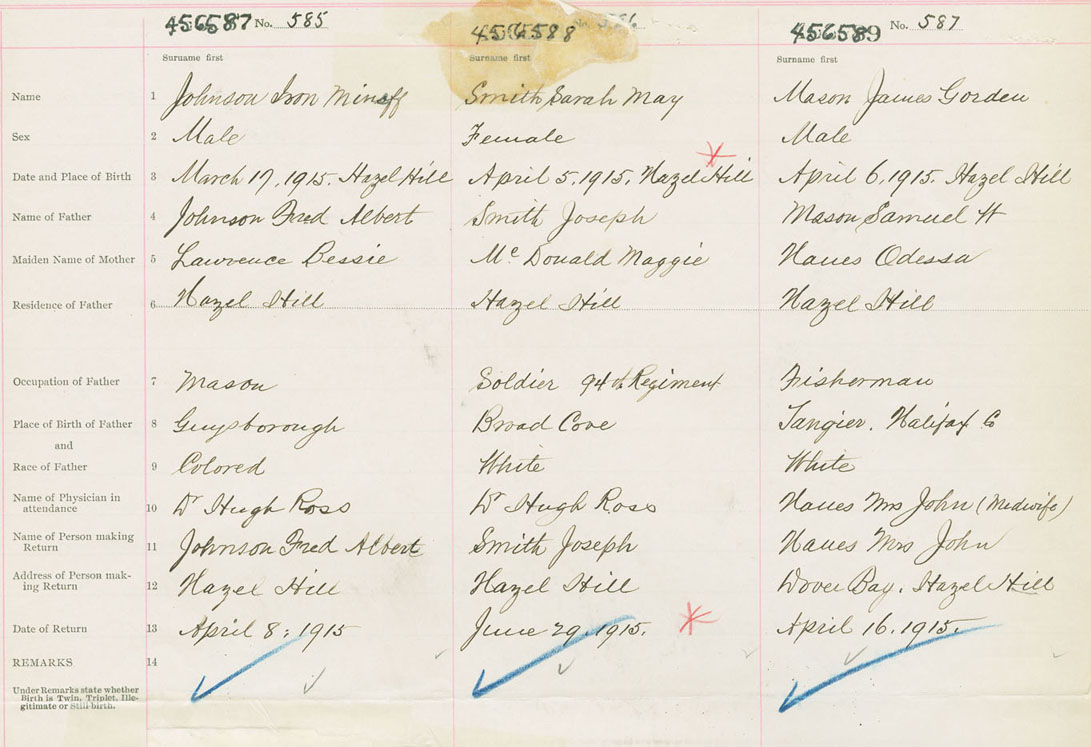 456587 No. 585 456588 No. 586 456589 No. 587
Surname first Surname first Surname first
Name 1 Johnson Iron Minaff Smith Sarah May Mason James Gorden
Sex 2 Male Female Male
Date and Place of Birth 3 March 17, 1915. Hazel Hill April 5, 1915. Hazel Hill April 6, 1915. Hazel Hill
Name of Father 4 Johnson Fred Albert Smith Joseph Mason Samuel H
Maiden Name of Mother 5 Lawrence Bessie Mc Donald Maggie Hanes Odessa
Residence of Father 6 Hazel Hill Hazel Hill Hazel Hill
Occupation of Father 7 Mason Soldier 94th Regiment Fisherman
Place of Birth of Father 8 Guysborough Broad Cove Tangier. Halifax Co
and
Race of Father 9 Colored White White
Name of Physician in
attendance 10 Dr Hugh Ross Dr Hugh Ross Hanes Mrs John (Medwife)
Name of Person making
Return 11 Johnson Fred Albert Smith Joseph Hanes Mrs John
Address of Person mak-
ing Return 12 Hazel Hill Hazel Hill Dover Bay. Hazel Hill
Date of Return 13 April 8, 1915 June 29, 1915. April 16, 1915.
REMARKS 14
Under Remarks state whether
Birth is Twin, Triplet, Ille-
gitimate or Still-birth.